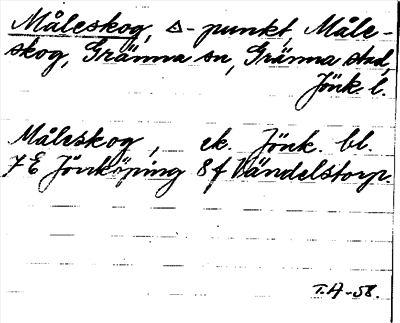 Måleskog, △-punkt, Måle-
skog, Gränna sn, Gränna stad,
Jönk. l.
Måleskog, ek. Jönk. bl.
7 E Jönköping 8 f Vändelstorp
T.H-58.